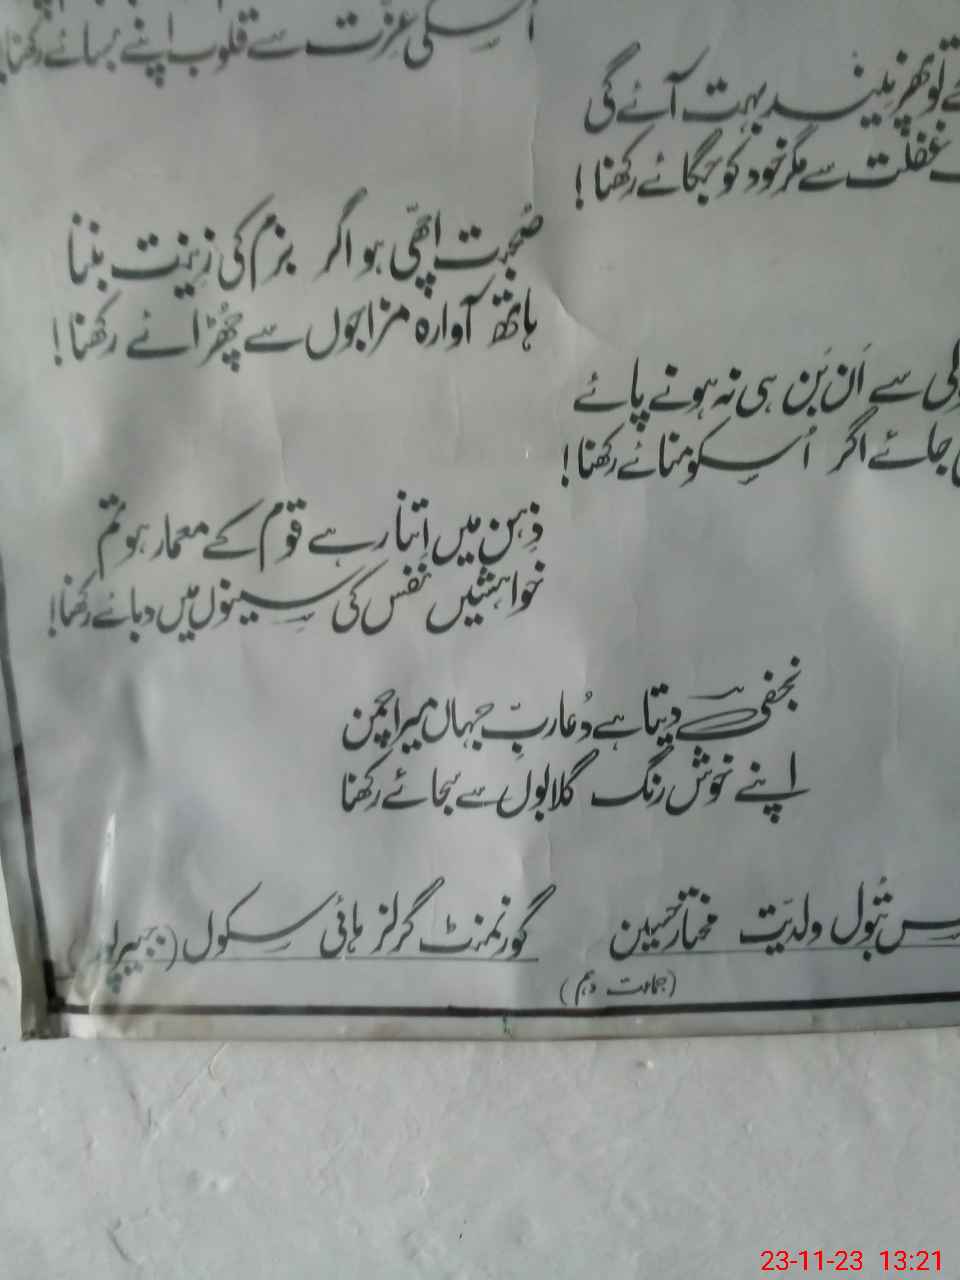 اسکی عزّت سے قلوب اپنے بسائے رکھنا
تو پھر نیند بہت آئے گی
غفلت سے مگر خود کو جگائے رکھنا!
صُحبت اچھّی ہو اگر بزم کی زینت بننا
ہاتھ آوارہ مزاجوں سے چُھڑائے رکھنا!
سے اَن بَن ہی نہ ہونے پائے
جائے اگر اُسکو منائے رکھنا!
ذِہن میں اِتنا رہے قوم کے معمار ہو تُم
خواہشیں نفس کی سینوں میں دبائے رکھنا!
نجفی دیتا ہے دُعا ربِّ جہاں میرا چمن
اپنے خوش رنگ گلابوں سے سجائے رکھنا
بتُول ولدیَت مختار حسین
گورنمنٹ گرلز ہائی سکول (بصیرپور
(جماعت دہم)
23-11-23 13:21